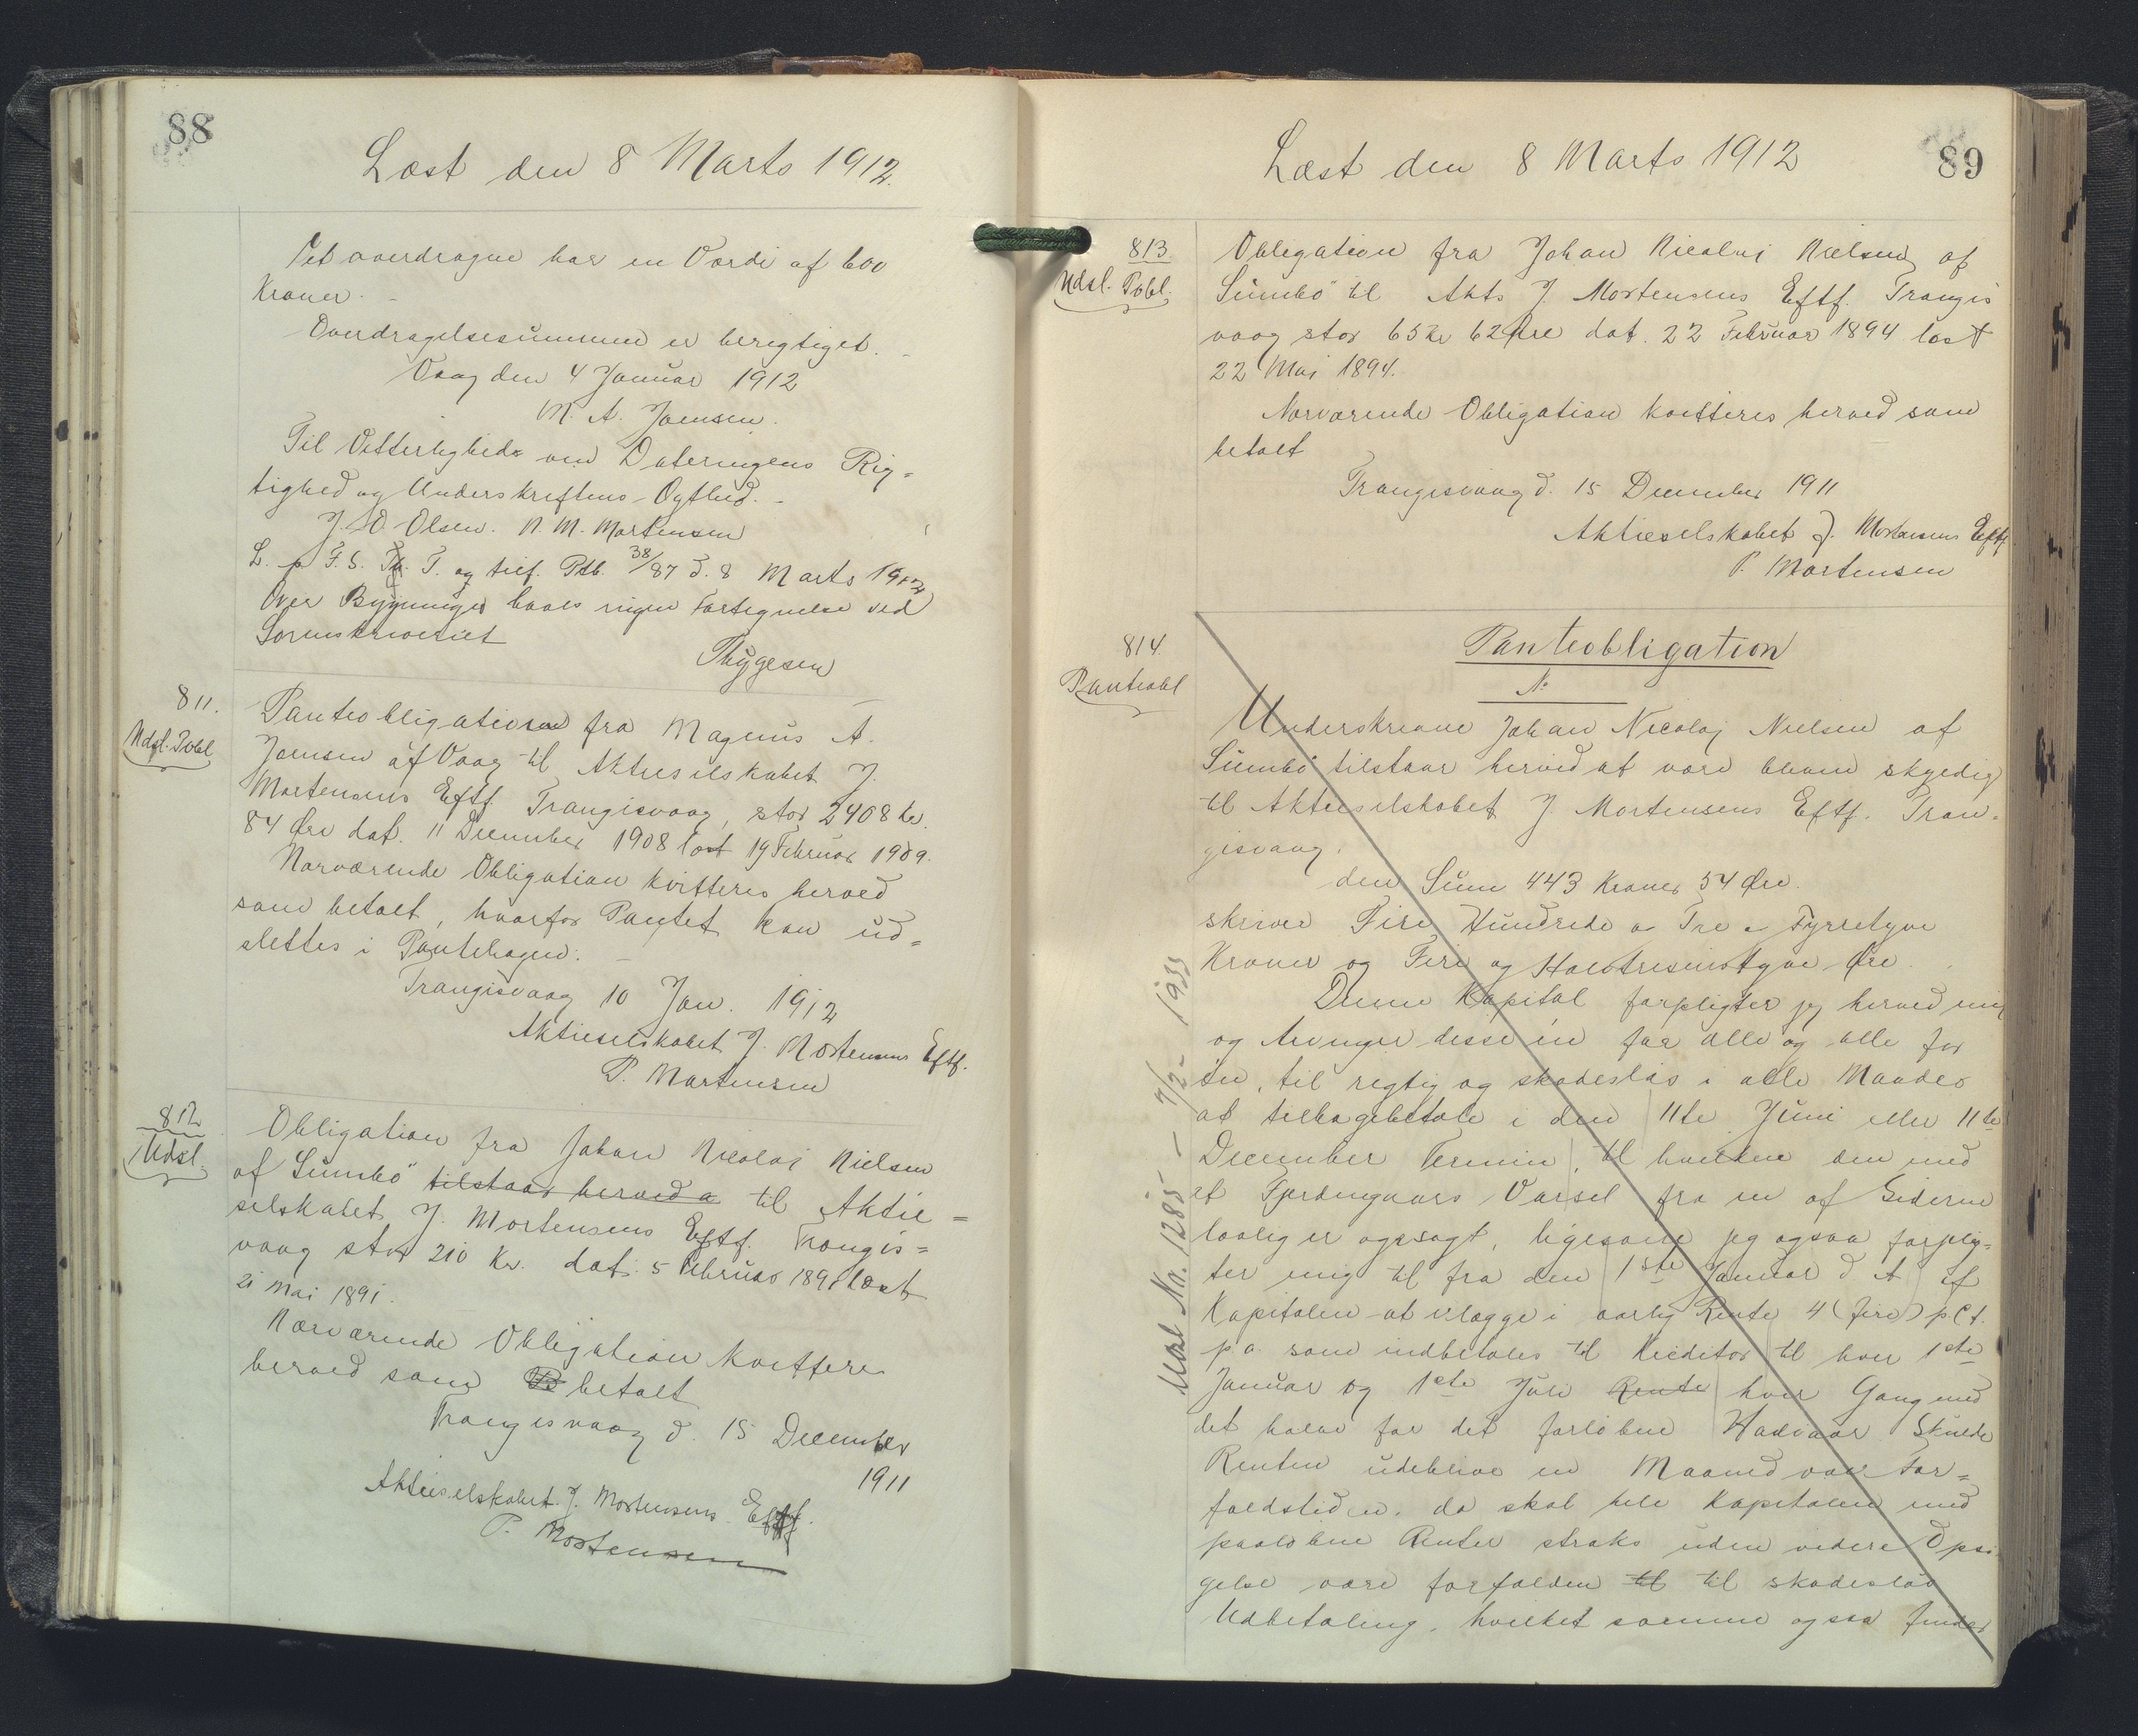 88
Læst den 8 Marts 1912.
Det overdragne har en Værdi af 600
Kroner. –
Overdragelsessummen er berigtiget. –
Vaag den 4 Januar 1912
M. A. Joensen.
Til Vitterlighed om Dateringens Rig=
tighed og Underskriftens Ægthed. –
J. D. Olsen. N. M. Mortensen
L. p F. S. T. og tilf. Ptb. 38/87 d. 8 Marts 1912
Over Bygninger haves ingen Fortegnelse ved
Sorenskriveriet
Thygesen
811.
Udsl. Pobl
Panteobligation fra Magnus A.
Joensen af Vaag til Aktieselskabet J.
Mortensens Eftf. Trangisvaag, stor 2408 kr.
84 Øre dat. 11 December 1908 læst 19 Februar 1909.
Nærværende Obligation kvitteres herved
som betalt, hvorfor Pantet kan ud=
slettes i Pantebogen. –
Trangisvaag 10 Jan. 1912
Aktieselskabet J. Mortensens Eftf.
P. Mortensen
812
Udsl.
Obligation fra Johan Nicolaj Nielsen
af Sumbø tilstaar herved a til Aktie=
selskabet J. Mortensens Eftf. Trangis=
vaag stor 210 Kr. dat. 5 Februar 1891 læst
21 Mai 1891.
Nærværende Obligation kvitteres
herved som Be betalt
Trangisvaag d. 15 December
1911
Aktieselskabet J. Mortensens Eftf.
P. Mortensen
89
Læst den 8 Marts 1912
813
Udsl. Pobl.
Obligation fra Johan Nicolaj Nielsen af
Sumbø til Akts J. Mortensens Eftf. Trangis
vaag stor 65 Kr 62 Øre dat. 22 Februar 1894 læst
22 Mai 1894.
Nærværende Obligation kvitteres herved som
betalt
Trangisvaag d. 15 December 1911
Aktieselskabet J. Mortensens Eftf.
P. Mortensen
814.
Panteobl
Panteobligation
Underskrevne Johan Nicolaj Nielsen af
Sumbø tilstaar herved at være bleven skyldig
til Aktieselskabet J. Mortensens Eftf. Tran=
gisvaag.
den Sum 443 Kroner 54 Øre.
skriver Fire Hundrede o Tre o Fyrretyve
Kroner og Fire og Halvtresinstyve Øre.
Denne Kapital forpligter jeg herved mig
og Arvinger disse én for alle og alle for
én, til rigtig og skadesløs i alle Maader
at tilbagebetale i den 11te Juni eller 11te
December Termin, til hvilken den med
et Fjerdingaars Varsel fra en af Siderne
lovlig er opsagt, ligesom jeg ogsaa forplig=
ter mig til fra den 1ste Januar d A af
Kapitalen at erlægge i aarlig Rente 4 (fire) p. Ct.
p a som indbetales til Kreditor til hver 1ste
Januar og 1ste Juli Rente hver Gang med
det halve for det forløbne Halvaar. Skulde
Renten udeblive en Maaned over For=
faldstiden, da skal hele Kapitalen med
paaløbne Renter straks uden videre Opsi
gelse være forfalden til til skadesløs
Udbetaling, hvilket samme ogsaa finder
Udsl. Nr. 1285 – 7/2 – 1933